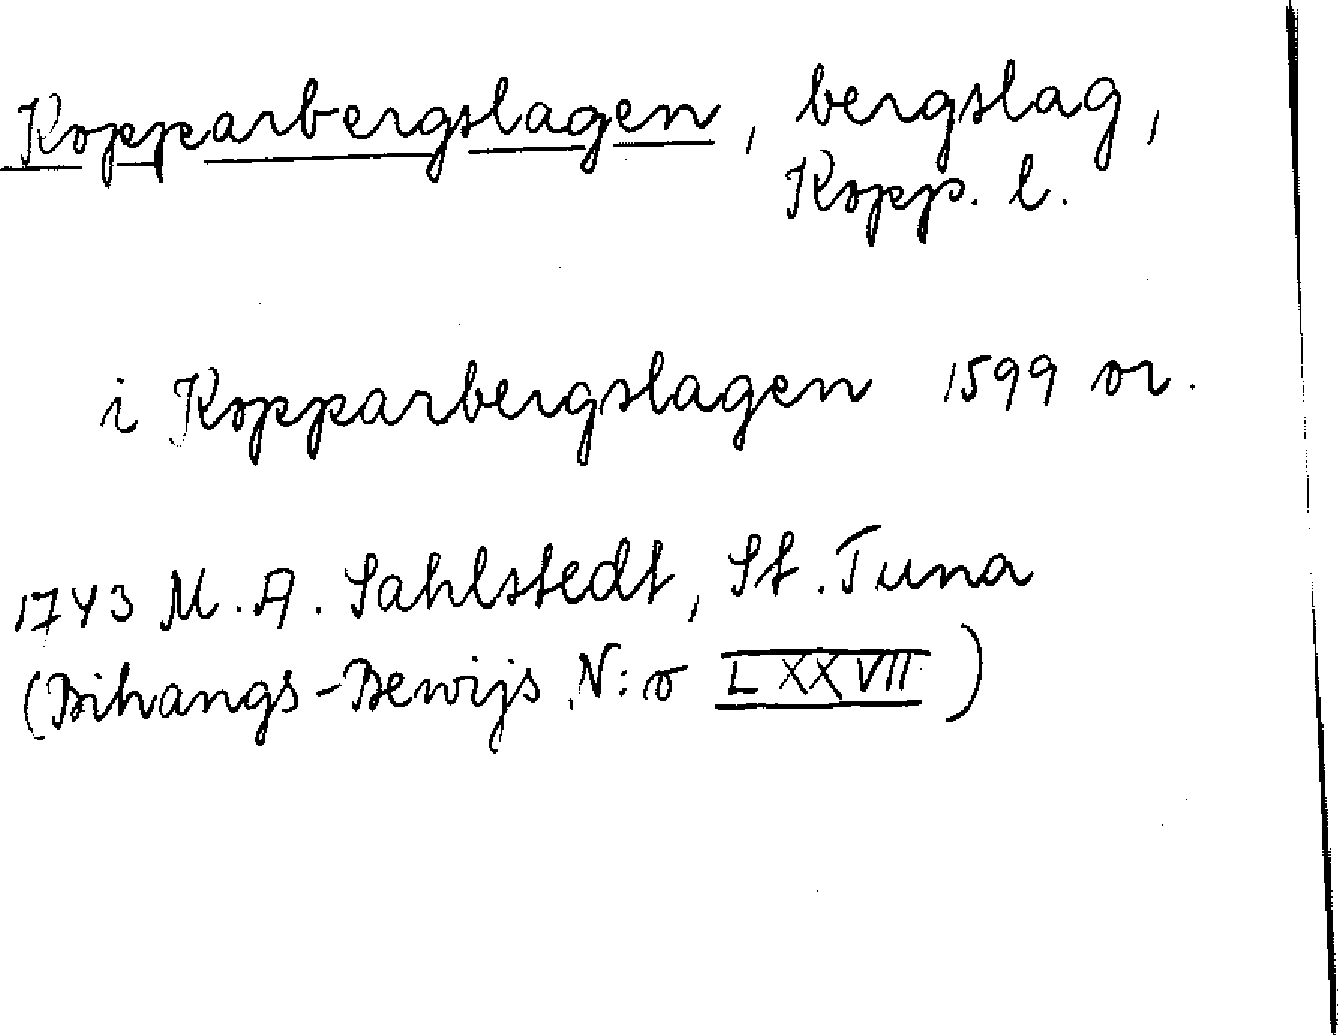 Kopparbergslagen, bergslag,
Kopp. l.
i Kopparbergslagen 1599 or.
1743 M. A. Sahlstedt, St. Tuna
(Bihangs-Bewijs N:o LXXVII)